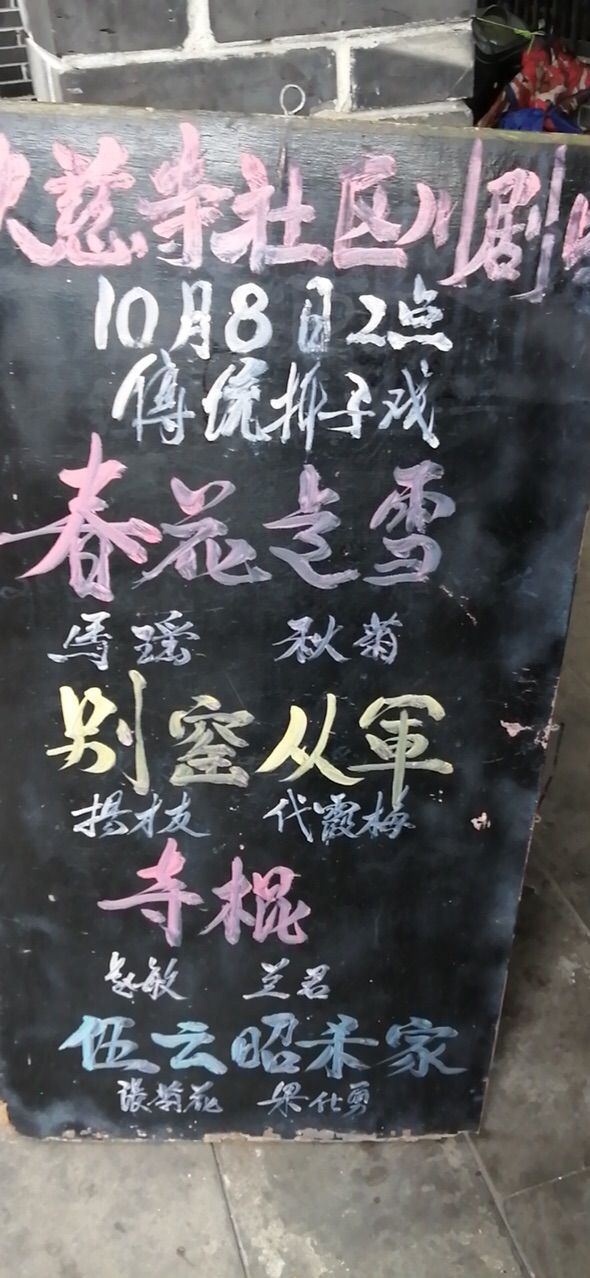 慈寺社区川剧
10月8日2点
傳统折子戏
春花走雪
馬瑶 秋菊
别窑从軍
揚才支 代霞梅
寺棍
赵敏 兰君
伍云昭杀家
張菊花 梁仕勇